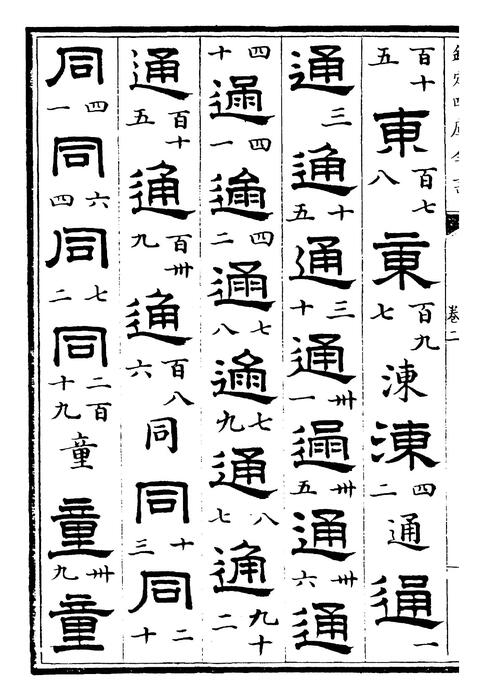 欽定四庫全書
卷二
百十五東百七八東百九七涷涷四二通通一
通三通十五通三十通卅一通卅五通卅六通
四十通四一通四二通七八通七九通八七通九十二
通百十五通百卅九通百八六同同十三同二十
同四一同六四同七二同二百十九童童卅九童